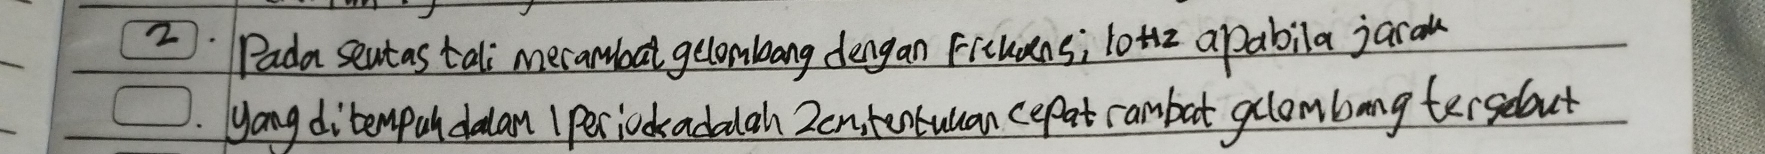 2. Pada seutas tali merambat gelombang dengan Frekuensi 10Hz apabila jarak
yang ditempuh dalam 1 periode adalah 2cm, tentukan cepat rambat gelombang tersebut